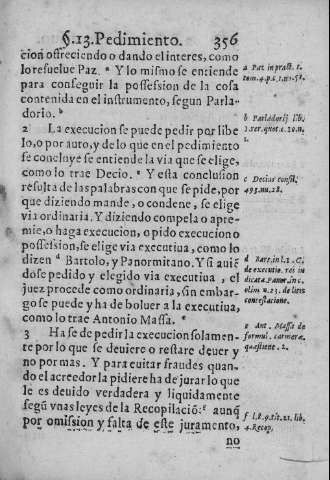 §.13. Pedimiento. 356
cion offreciendo o dando el interes, como
lo resuelue Paz. ª Y lo mismo se entiende
para conseguir la possession de la cosa
contenida en el instrumento, segun Parla-
dorio. ᵇ
2 La execucion se puede pedir por libe
lo, o por auto, y de lo que en el pedimiento
se concluye se entiende la via que se elige,
como lo trae Decio. ᶜ Y esta conclusion
resulta de las palabras con que se pide, por
que diziendo mande, o condene, se elige
via ordinaria. Y diziendo compela o apre-
mie, o haga execucion, o pido execucion o
possession, se elige via executiua, como lo
dizen ᵈ Bartolo, y Panormitano. Y si auiẽ
dose pedido y elegido via executiua, el
juez procede como ordinaria, sin embar-
go se puede y ha de boluer a la executiua,
como lo trae Antonio Massa. ᵉ
3 Ha se de pedir la execucion solamen-
te por lo que se deuiere o restare deuer y
no por mas. Y para euitar fraudes quan-
do el acreedor la pidiere ha de jurar lo que
le es deuido verdadera y liquidamente
segũ vnas leyes de la Recopilaciõ: ᶠ aunq̃
por omission y falta de este juramento,
no
a Paz in pract. 1.
tom. 4. p. c. 1. nu. 52.
b Parladorij lib.
2. rer. quot. c. 20. n.
2.
c Decius consil.
493. nu. 28.
d Bart. in l. 2. C.
de executio. rei in
dicata. Panor. in c.
olim n. 23. de litis
contestatione.
e Ant. Massa de
formul. camerae.
quaestione. 2.
f l. 8. 9. tit. 21. lib.
4. Recop.